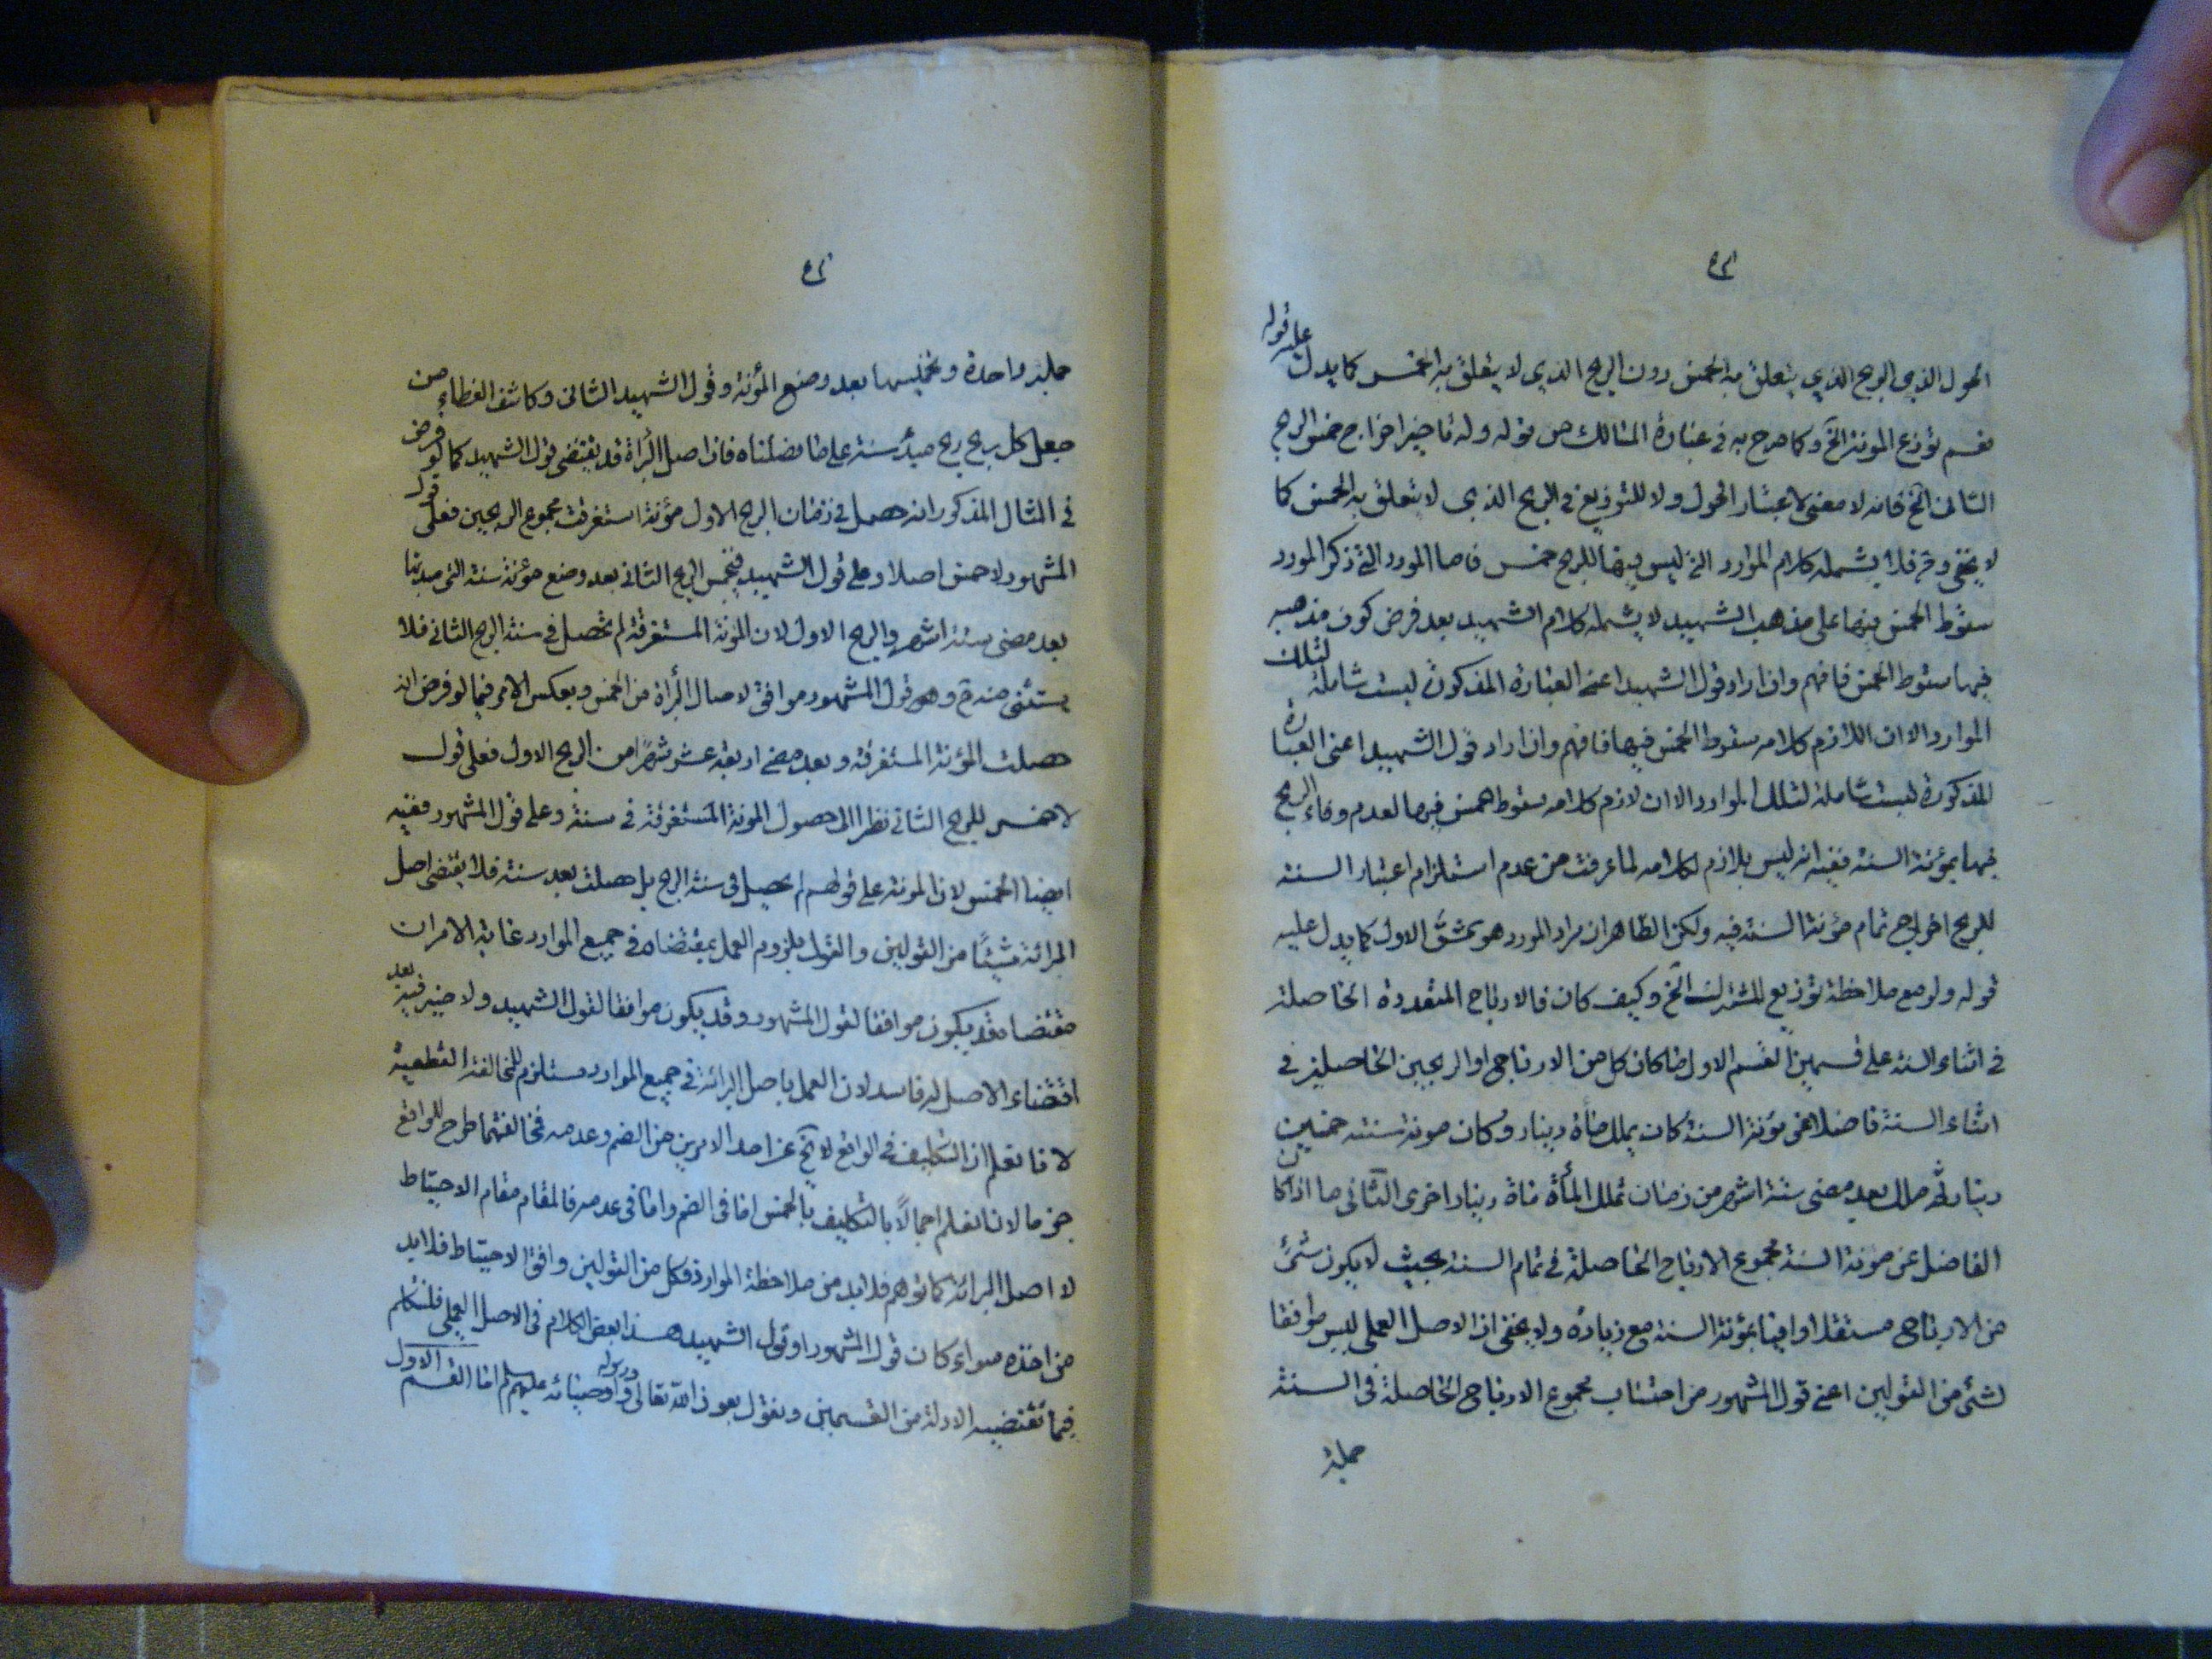 الحول الذي الربح الذي يتعلق به الخمس دون الربح الذي لا يتعلق به الخمس كما يدل عليه قوله
نعم توزع المونة الخ وكما صرح به في عبارة المسالك من قوله وله تاخير اخراج خمس الربح
الثاني الخ فانه لا معنى لاعتبار الحول ولا للتوزيع في الربح الذي لا يتعلق به الخمس كما
لا يخفى وح فلا يشمله كلام الموارد التي ليس فيها للربح خمس فاما المورد التي ذكر المورد
سقوط الخمس فيها على مذهب الشهيد لا يشمله كلام الشهيد بعد فرض كون مذهبه
فيها سقوط الخمس فافهم وان اراد قول الشهيد اعني العبارة المذكورة ليست شاملة لتلك
الموارد الا ان اللازم كلامه سقوط الخمس فيها فافهم وان اراد قول الشهيد اعني العبارة
المذكورة ليست شاملة لتلك الموارد الا ان لازم كلامه سقوط الخمس فيها لعدم وفاء الربح
فيها بمؤنة السنة ففيه انه ليس بلازم لكلامه لما عرفت من عدم استلزام اعتبار السنة
للربح اخراج تمام مؤنة السنة فيه ولكن الظاهر ان مراد المورد هو بشق الاول كما يدل عليه
قوله ولو مع ملاحظة توزيع المشترك الخ وكيف كان فالارباح المتعددة الحاصلة
في اثناء السنة على قسمين القسم الاول ما كان كل من الارباح او الربحين الحاصلين في
اثناء السنة فاضلا عن مؤنة السنة كان يملك مأة دينار وكان مونة سنته خمسين
دينار ثم ملك بعد مضى ستة اشهر من زمان تملك المأة مأة دينار اخرى الثاني ما اذا كان
الفاضل عن مونة السنة مجموع الارباح الحاصلة في تمام السنة بحيث لا يكون شئ
من الارباح مستقلا وافيا بمؤنة السنة مع زيادة ولا يخفى ان الاصل العملي ليس موافقا
لشئ من القولين اعني قول المشهور من احتساب مجموع الارباح الحاصلة في السنة
جملة
جملة واحدة وتخميسها بعد وضع المؤنة وقول الشهيد الثاني وكاشف الغطاء من
جعل كل ربح ربح مبدء سنة على ما فصلناه فان اصل البرأة قد يقتضى قول الشهيد كما لو فرض
في المثال المذكور انه حصل في زمان الربح الاول مؤنة استغرقت مجموع الربحين فعلى قول
المشهور لا خمس اصلا وعلى قول الشهيد فيخمس الربح الثاني بعد وضع مؤنة سنة التي مبدئها
بعد مضى ستة اشهر والربح الاول لان المؤنة المستغرقة لم تحصل في سنة الربح الثاني فلا
يستثنى منه ح وهو قول المشهور موافق لاصالة البرأة من الخمس وبعكس الامر فيما لو فرض انه
حصلت المؤنة المستغرقة وبعد مضى اربعة عشر شهرا من الربح الاول فعلى قول
لا خمس للربح الثاني نظرا الى حصول المونة المستغرقة في سنة وعلى قول المشهور ففيه
ايضا الخمس لان المونة على قولهم لم يحصل في سنة الربح بل حصلت بعد سنة فلا يقتضى اصل
البرائة شيئا من القولين والقول بلزوم العمل بمقتضاه في جميع الموارد غاية الامر ان
مقتضاه قد يكون موافقا لقول المشهور وقد يكون موافقا لقول الشهيد ولا ضير فيه بعد
اقتضاء الاصل له فاسد لان العمل باصل البرائة في جميع الموارد مستلزم للمخالفة القطعية
لانا نعلم ان التكليف في الواقع لا يخ عن احد الامرين من الضم وعدمه فمخالفتهما طرح للواقع
جزما لانا نعلم اجمالا بالتكليف بالخمس اما في الضم واما في عدمه فالمقام مقام الاحتياط
لا اصل البرائة كما توهم فلا بد من ملاحظة الموارد فكل من القولين وافق الاحتياط فلا بد
من اخذه سواء كان قول المشهور او قول الشهيد هذا بعض الكلام في الاصل العملي فلنتكلم
فيما تقتضيه الادلة من القسمين ونقول بعون الله تعالى ورسوله واوصيائه عليهم اما القسم الاول